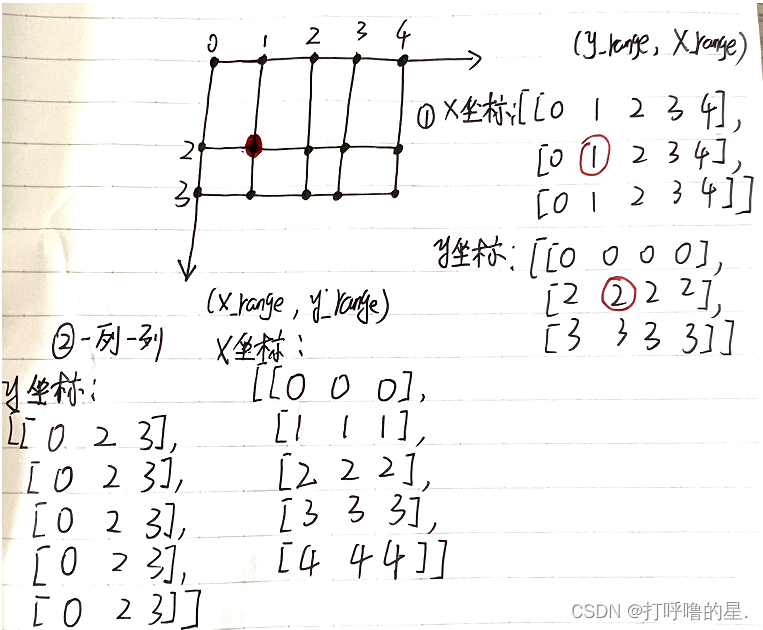 0 1 2 3 4
(y_range, X_range)
① X坐标:[[0 1 2 3 4],
[0 1 2 3 4],
[0 1 2 3 4]]
2
3
y坐标: [[0 0 0 0],
[2 2 2 2],
[3 3 3 3]]
(X_range, y_range)
②一列一列
X坐标:
[[0 0 0],
[1 1 1],
[2 2 2],
[3 3 3],
[4 4 4]]
y坐标:
[[0 2 3],
[0 2 3],
[0 2 3],
[0 2 3],
[0 2 3]]
CSDN @打呼噜的星.